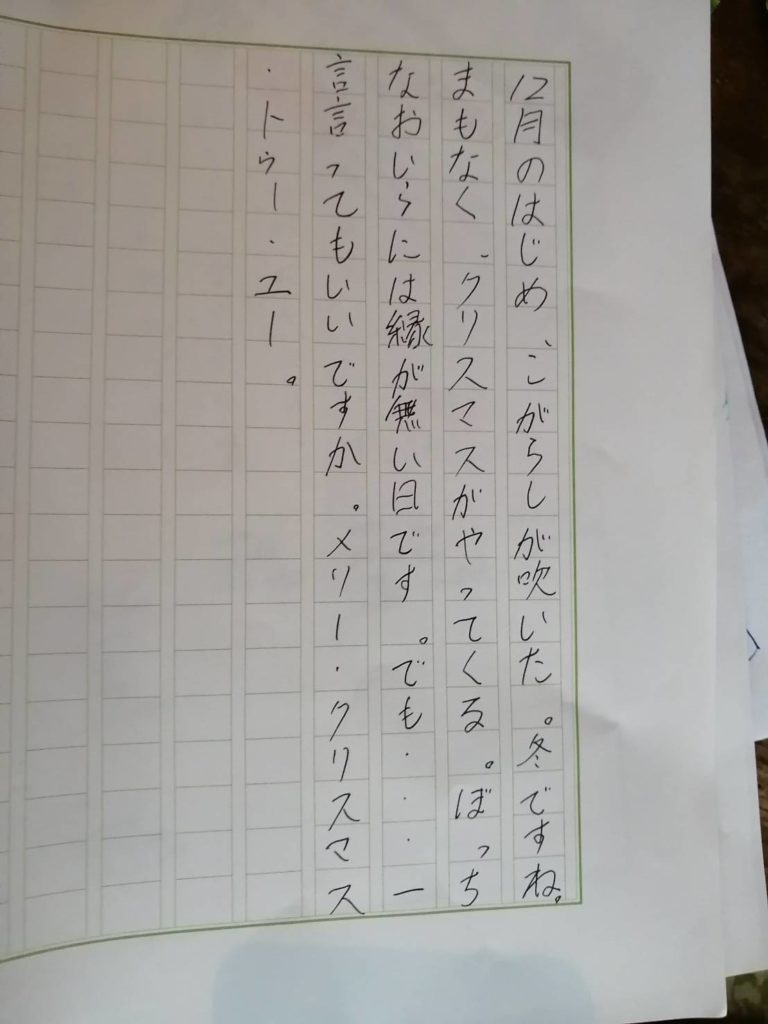 12月のはじめ、こがらしが吹いた。冬ですね。
まもなく、クリスマスがやってくる。ぼっち
なおいらには縁が無い日です。でも・・・一
言言ってもいいですか。メリー・クリスマス
・トゥー・ユー。